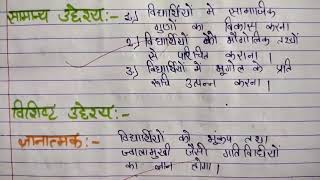 सामान्य उद्देश्य:- 1.) विद्यार्थियों मे सामाजिक
गुणों का विकास करना
2.) विद्यार्थियों को भौगोलिक तथ्यों
से परिचित कराना।
3.) विद्यार्थियों में भूगोल के प्रति
रूचि उत्पन्न करना।
विशिष्ट उद्देश्य:-
ज्ञानात्मक:- विद्यार्थियों को भूकंप तथा
ज्वालामुखी जैसी गतिविधियों
का ज्ञान होगा।